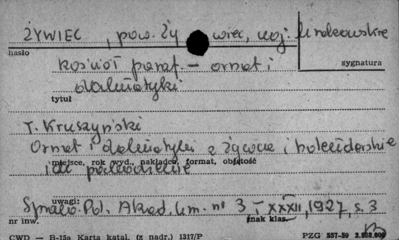 ŻYWIEC, pow. Ży wiec, woj. Krakowskie
hasło
sygnatura
kościół paraf. – ornat i
dalmatyki
tytuł
T. Kruszyński
Ornat i dalmatyki z Żywca i holenderskie
miejsce, rok wyd., nakładca, format, objętość
ich pochodzenie
uwagi:
Spraw. Pol. Akad. Um. nº 3 – XXXII, 1927, s. 3
nr inw.
znak klas.
CWD — B-15a Karta katal. (z nadr.) 1317/P
PZG 557-59